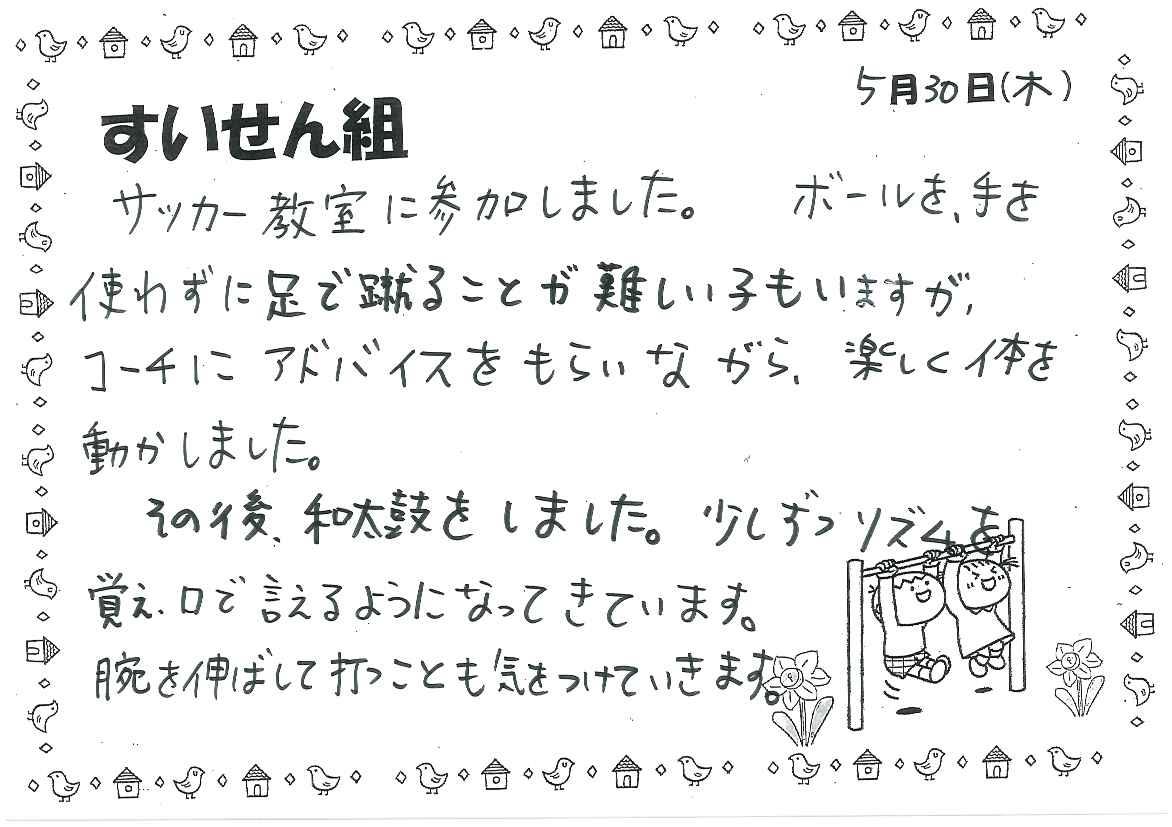 5月30日(木)
すいせん組
サッカー教室に参加しました。 ボールを、手を
使わずに足で蹴ることが難しい子もいますが、
コーチにアドバイスをもらいながら、楽しく体を
動かしました。
その後、和太鼓をしました。少しずつリズムを
覚え、口で言えるようになってきています。
腕を伸ばして打つことも気をつけていきます。